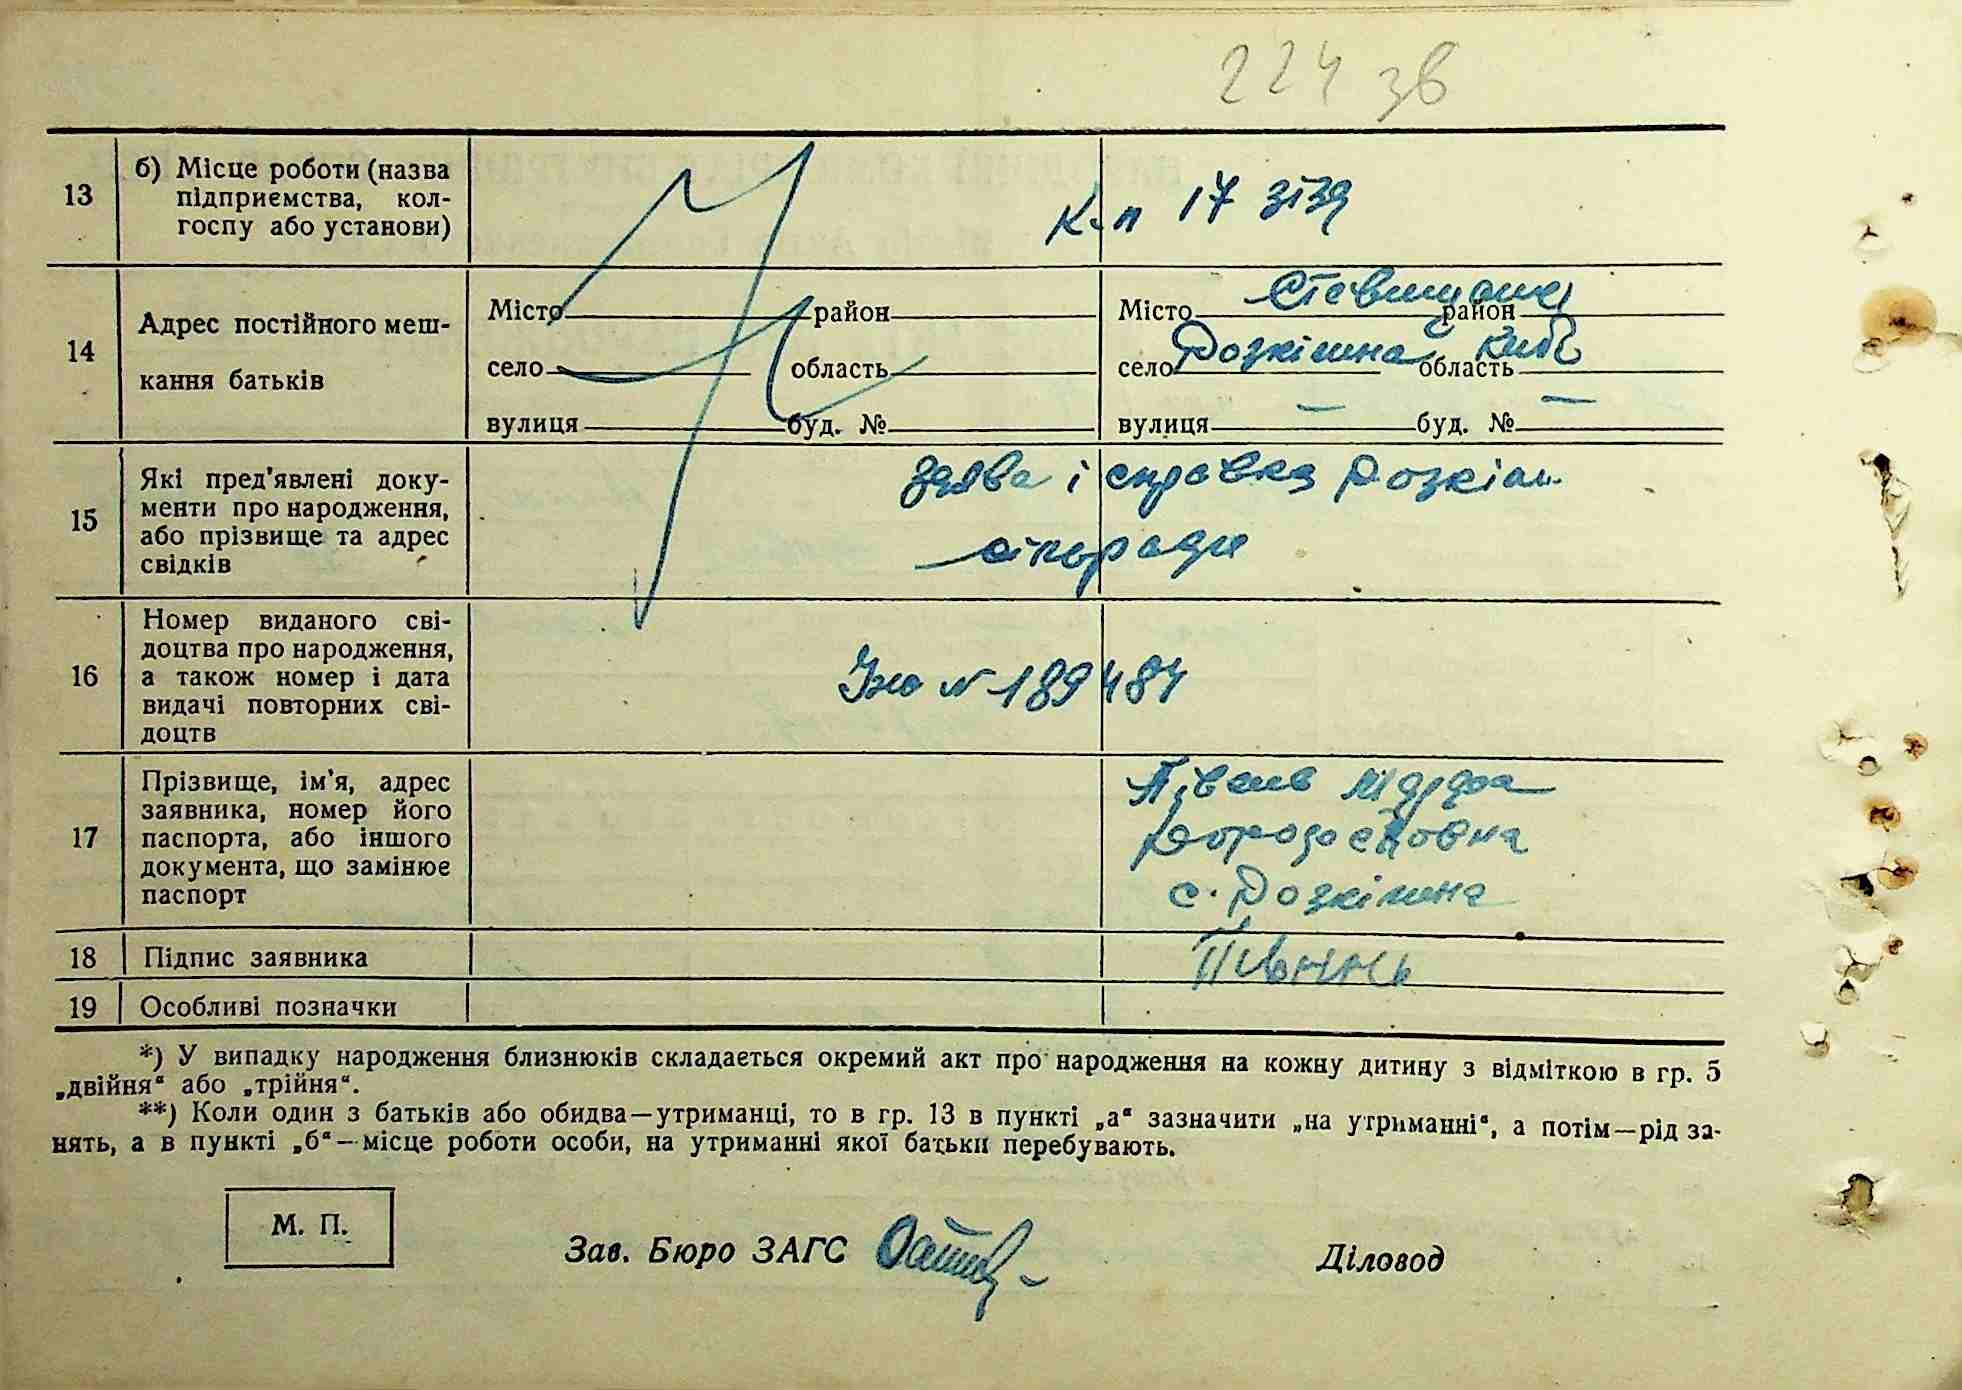 224 зв
13
б) Місце роботи (назва
підприємства, кол-
госпу або установи)
К-п 17 зізд
14
Адрес постійного меш-
кання батьків
Місто район
село область
вулиця буд. №
Місто Ставищанс район
село Розкішна область Київ
вулиця — буд. № —
15
Які пред'явлені доку-
менти про народження,
або прізвище та адрес
свідків
заява і справка Розкіш.
сільради
16
Номер виданого сві-
доцтва про народження,
а також номер і дата
видачі повторних сві-
доцтв
№ 189484
17
Прізвище, ім'я, адрес
заявника, номер його
паспорта, або іншого
документа, що замінює
паспорт
Півень Марфа
с. Розкішна
18
Підпис заявника
Півень
19
Особливі позначки
*) У випадку народження близнюків складається окремий акт про народження на кожну дитину з відміткою в гр. 5
„двійня“ або „трійня“.
**) Коли один з батьків або обидва—утриманці, то в гр. 13 в пункті „а“ зазначити „на утриманні“, а потім—рід за-
нять, а в пункті „б“—місце роботи особи, на утриманні якої батьки перебувають.
М. П.
Зав. Бюро ЗАГС
Діловод